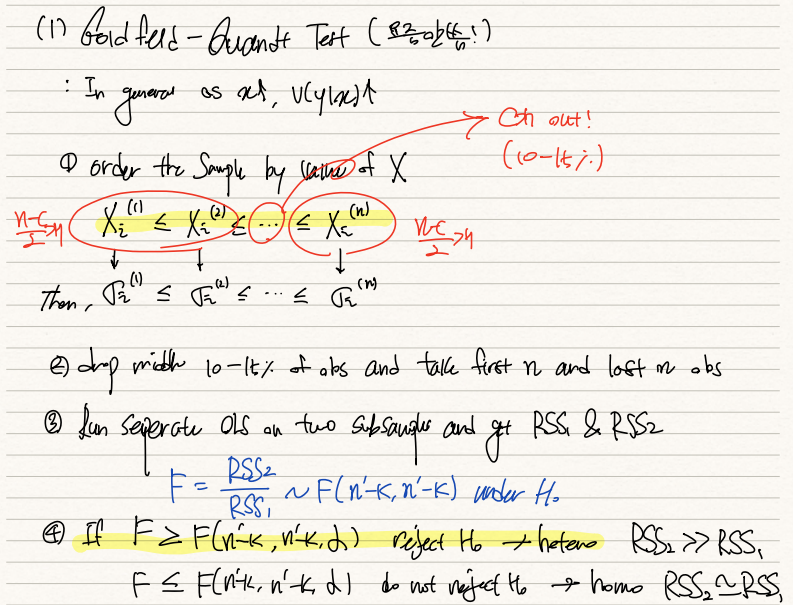 (1) Goldfeld - Quandt Test (
: In general as x↑, V(y|x)↑
Cut out!
(10-15%)
① order the Sample by value of X
n-c/2 개 X_i^(1) ≤ X_i^(2) ≤ ... ≤ X_i^(n) n-c/2 개
↓ ↓ ↓
Then, σ_i^(1) ≤ σ_i^(2) ≤ ... ≤ σ_i^(n)
② drop middle 10-15% of obs and take first n and last n obs
③ Run seperate OLS on two subsamples and get RSS₁ & RSS₂
F = RSS₂/RSS₁ ~ F(n'-K, n'-K) under H₀
④ If F ≥ F(n'-K, n'-K, α) reject H₀ → hetero RSS₂ >> RSS₁
F ≤ F(n'-K, n'-K, α) do not reject H₀ → homo RSS₂ ≃ RSS₁